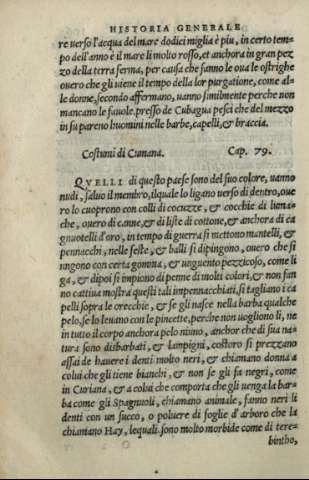 HISTORIA GENERALE
re uerso l'acqua del mare dodici miglia è piu, in certo tem-
po dell'anno è il mare li molto rosso, et anchora in gran pez
zo della terra ferma, per causa che fanno le oua le ostrighe
ouero che gli uiene il tempo della lor purgatione, come al-
le donne, secondo affermano, uanno similmente perche non
mancano le fauole. presso de Cubagua pesci che del mezzo
in su pareno huomini nelle barbe, capelli, & braccia.
Costumi di Cumana. Cap. 79.
QVELLI di questo paese sono del suo colore, uanno
nudi, saluo il membro, il quale lo ligano uerso di dentro, oue
ro lo cuoprono con colli di cocuzze, & cocchie di luma-
che, ouero di canne, & di liste di cottone, & anchora di ca
gnuotelli d'oro, in tempo di guerra si mettono mantelli, &
pennacchi, nelle feste, & balli si dipingono, ouero che si
ungono con certa gomma, & unguento pezzicoso, come li
ga, & dipoi si impiono di penne di molti colori, & non fan
no cattiua mostra questi tali impennacchiati, si tagliano i ca
pelli sopra le orecchie, & se gli nasce nella barba qualche
pelo, se lo leuano con le pincette, perche non uogliono li, ne
in tutto il corpo anchora pelo niuno, anchor che di sua na-
tura sono disbarbati, & lampigni, costoro si prezzano
assai de hauere i denti molto neri, & chiamano donna a
colui che gli tiene bianchi, & non se gli fa negri, come
in Curiana, & a colui che comporta che gli uenga la bar-
ba come gli Spagnuoli, chiamano animale, fanno neri li
denti con un succo, o poluere di foglie d'arboro che la
chiamano Hay, lequali sono molto morbide come di tere-
bintho,